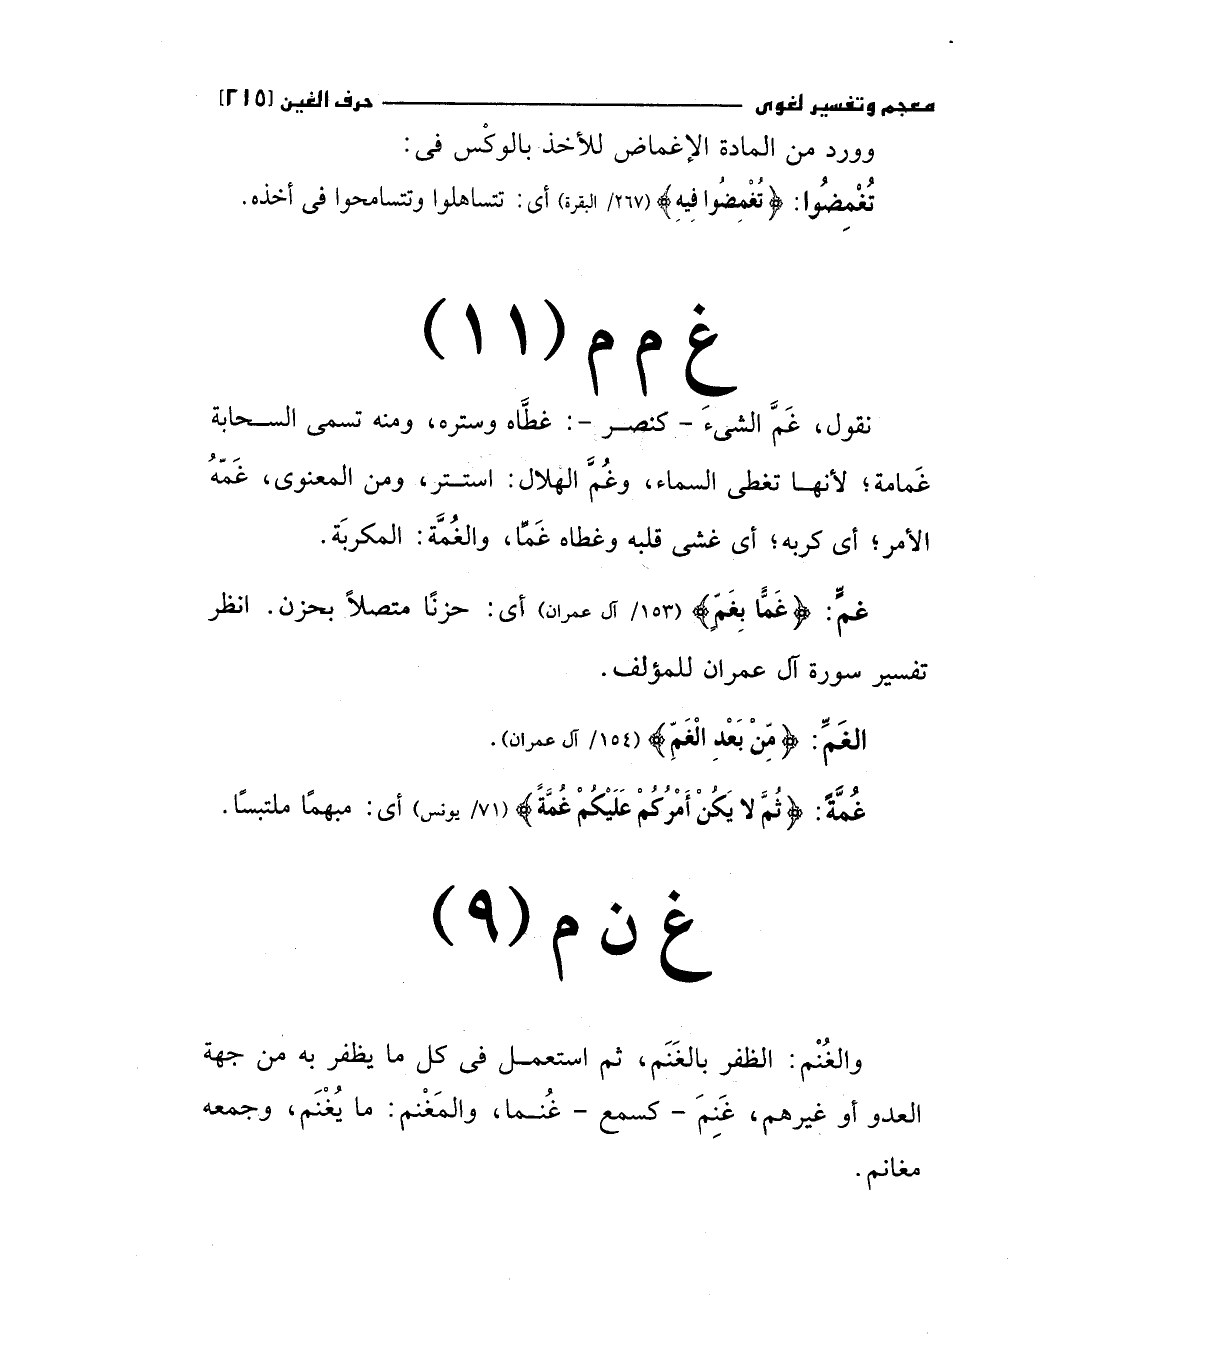 معجم وتفسير لغوى ــــــــــ حرف الغين [٢١٥]
وورد من المادة الإغماض للأخذ بالوكْس فى:
تُغْمِضُوا: ﴿تُغْمِضُوا فِيهِ﴾ (٢٦٧/ البقرة) أى: تتساهلوا وتتسامحوا فى أخذه.
غ م م (١١)
نقول، غَمَّ الشىءَ - كنصر -: غطَّاه وستره، ومنه تسمى السحابة
غَمامة؛ لأنها تغطى السماء، وغُمَّ الهلال: استتر، ومن المعنوى، غَمّهُ
الأمر؛ أى كربه؛ أى غشى قلبه وغطاه غَمًّا، والغُمَّة: المكربَة.
غمٍّ: ﴿غَمًّا بِغَمٍّ﴾ (١٥٣/ آل عمران) أى: حزنًا متصلاً بحزن. انظر
تفسير سورة آل عمران للمؤلف.
الغَمِّ: ﴿مِّنْ بَعْدِ الْغَمِّ﴾ (١٥٤/ آل عمران).
غُمَّةً: ﴿ثُمَّ لا يَكُنْ أَمْرُكُمْ عَلَيْكُمْ غُمَّةً﴾ (٧١/ يونس) أى: مبهمًا ملتبسًا.
غ ن م (٩)
والغُنْم: الظفر بالغَنَم، ثم استعمل فى كل ما يظفر به من جهة
العدو أو غيرهم، غَنِمَ - كسمع - غُنما، والمَغْنم: ما يُغْنَم، وجمعه
مغانم.